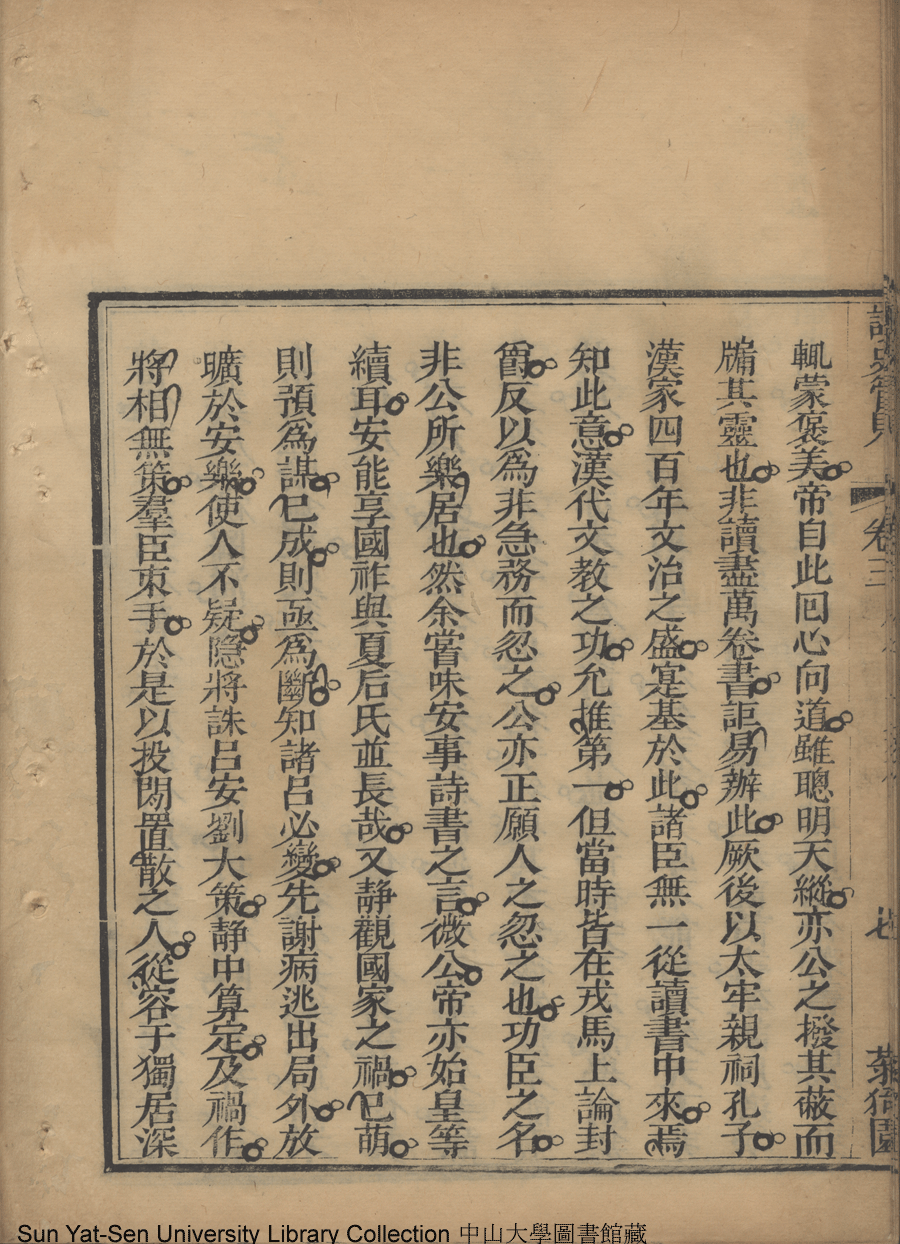 卷三
七
輒蒙褒美帝自此囘心向道雖聰明天縱亦公之撥其蔽而
牖其靈也非讀盡萬卷書詎易辦此厥後以太牢親祠孔子
漢家四百年文治之盛寔基於此諸臣無一從讀書中來焉
知此意漢代文教之功允推第一但當時皆在戎馬上論封
爵反以為非急務而忽之公亦正願人之忽之也功臣之名
非公所樂居也然余嘗味安事詩書之言微公帝亦始皇等
續耳安能享國祚與夏后氏並長哉又靜觀國家之禍已萌
則預爲謀已成則亟爲斷知諸呂必變先謝病逃出局外放
曠於安樂使人不疑隱將誅呂安劉大策靜中算定及禍作
將相無策羣臣束手於是以投閒置散之人從容于獨居深
Sun Yat-Sen University Library Collection 中山大學圖書館藏